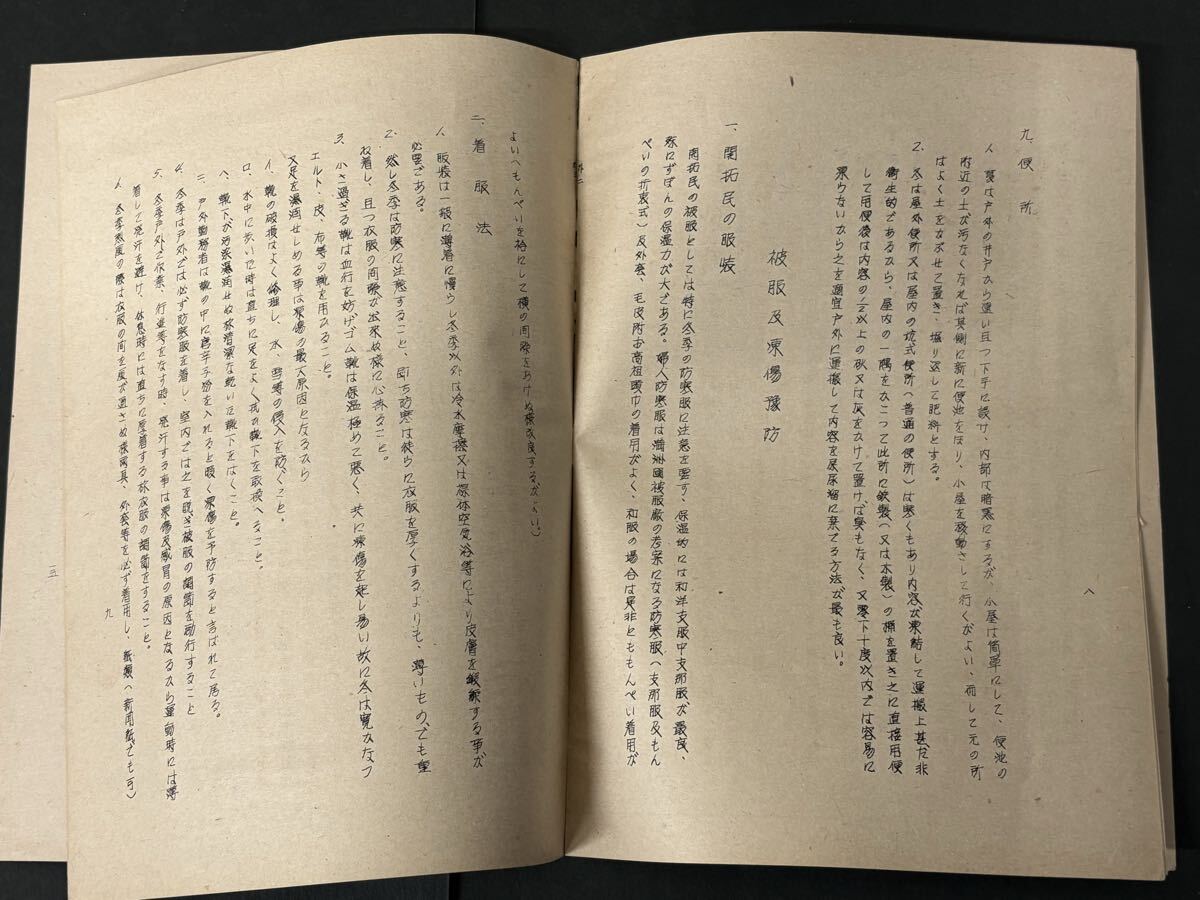 九、便所
1、夏は戸外の井戸から遠い且つ下手に設け、内部は暗黒にするが、小屋は簡単にして、便池の
附近の土が汚なくなれば其側に新に便池をほり、小屋を移動さして行くがよい、而して元の所
はよく土をかぶせて置き、堀り返して肥料とする。
2、冬は屋外便所又は屋内の坑式便所(普通の便所)は寒くもあり内容が凍結して運搬上甚だ非
衛生的であるから、屋内の一隅をかこつて此所に鉄製(又は木製)の桶を置き之に直接用便
して用便後は内容の1/2以上の砂又は灰をかけて置けば臭もなく、又零下十度以内では容易に
凍らないから之を適宜戸外に運搬して内容を尿尿溜に棄てる方法が最も良い。
被服及凍傷豫防
一、開拓民の服装
開拓民の被服としては特に冬季の防寒服に注意を要す、保温的には和洋支服中支那服が最良、
殊にずぼんの保温力が大である。婦人防寒服は満洲國被服廠の考案になる防寒服(支那服及もん
ぺいの折衷式)及外套、毛皮附お高祖頭巾の着用がよく、和服の場合は是非とももんぺい着用が
八
よい(もんぺいを袷にして横の間隙をあけぬ様改良するがよい。)
二、着服法
1、服装は一般に薄着に慣らし冬季以外は冷水摩擦又は裸体空気浴等により皮膚を鍛錬する事が
必要である。
2、然し冬季は防寒に注意すること、即ち防寒は徒らに衣服を厚くするよりも、薄いもの、でも重
ね着し、且つ衣服の間隙が出来ぬ様に心掛ること。
3、小さ過ぎる靴は血行を妨げゴム靴は保温極めて悪く、共に凍傷を起し易い故に冬は寛かなフ
エルト、皮、布等の靴を用ひること。
又足を濕潤せしめる事は凍傷の最大原因となるから
イ、靴の破損はよく修理し、水、雪等の侵入を防ぐこと。
ロ、水中に歩いた時は直ちに足をよく拭ひ靴下を取換へること。
ハ、靴下が汚染濕潤せぬ故清潔な乾いた靴下をはくこと。
ニ、戸外勤務者は靴の中に唐辛子粉を入れると暖く凍傷を予防すると言はれて居る。
4、冬季は戸外では必ず防寒服を着し、室内では之を脱ぎ被服の調節を励行すること
5、冬季戸外で作業、行進等をなす時、発汗する事は凍傷及感冒の原因となるから運動時には薄
着して発汗を避け、休息時には直ちに厚着する故衣服の調節をすること。
6、冬季旅の際は衣服の間を風が通さぬ様雨具、外套等を必ず着用し、紙類(新聞紙でも可)
九
一五